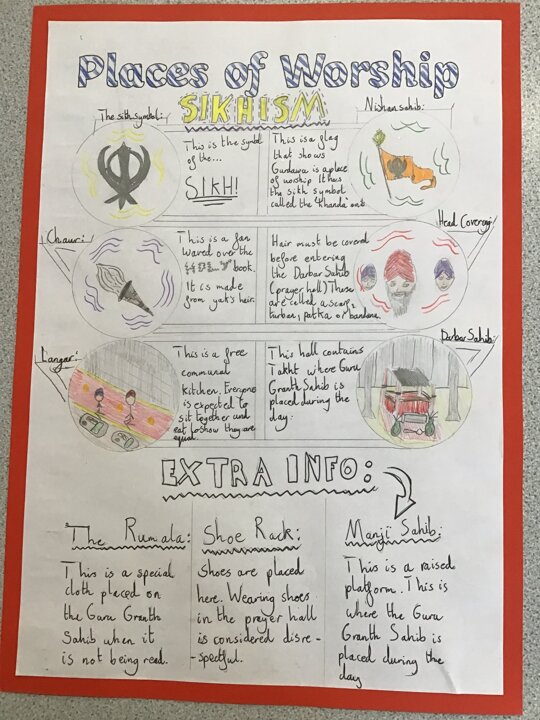 Places of Worship
SIKHISM
The sith symbol:
This is the symbol
of the...
SIKH!
Nishan sahib:
This is a flag
that shows
Gurdawa is a place
of worship. It has
the sith symbol
called the 'Khanda' on it
Chauri:
This is a fan
waved over the
HOLY book.
It is made
from yak's heir.
Head Covering:
Hair must be covered
before entering
the Darbar Sahib
(prayer hall) These
are called a scarf,
turban, patka or bandana.
Langar:
This is a free
communal
kitchen. Everyone
is expected to
sit together and
eat to show they are
equal
Darbar Sahib:
This hall contains
Takht where Guru
Granth Sahib is
placed during the
day.
EXTRA INFO:
The Rumala:
This is a special
cloth placed on
the Guru Granth
Sahib when it
is not being read.
Shoe Rack:
Shoes are placed
here. Wearing shoes
in the prayer hall
is considered disre-
-spectful.
Manji Sahib:
This is a raised
platform. This is
where the Guru
Granth Sahib is
placed during the
day